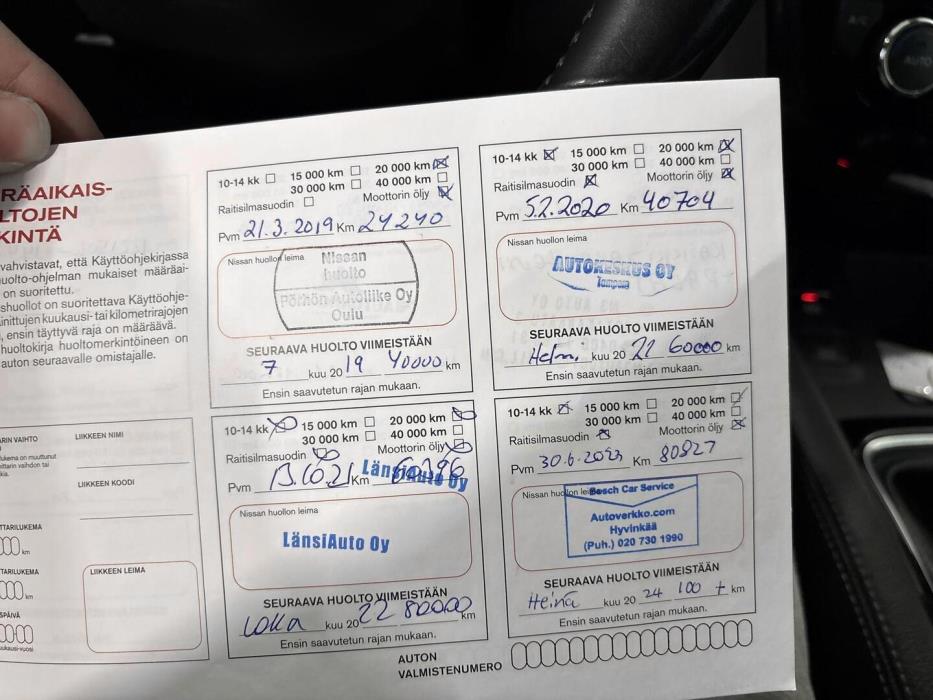 RÄAIKAIS-
LTOJEN
KINTÄ
vahvistavat, että Käyttöohjekirjassa
huolto-ohjelman mukaiset määräai-
on suoritettu.
shuollot on suoritettava Käyttöohje-
inittujen kuukausi- tai kilometrirajojen
, ensin täyttyvä raja on määräävä.
huoltokirja huoltomerkintöineen on
auton seuraavalle omistajalle.
10-14 kk 15 000 km 20 000 km
30 000 km 40 000 km
Raitisilmasuodin Moottorin öljy
Pvm 21.3.2019 Km 24240
Nissan huollon leima
Nissan
huolto
Pörhön Autoliike Oy
Oulu
SEURAAVA HUOLTO VIIMEISTÄÄN
7 kuu 20 19 40000 km
Ensin saavutetun rajan mukaan.
10-14 kk 15 000 km 20 000 km
30 000 km 40 000 km
Raitisilmasuodin Moottorin öljy
Pvm 5.2.2020 Km 40704
Nissan huollon leima
AUTOKESKUS OY
Tampere
SEURAAVA HUOLTO VIIMEISTÄÄN
Helmi kuu 20 21 60000 km
Ensin saavutetun rajan mukaan.
ARIN VAIHTO
LIIKKEEN NIMI
lukema on muuttunut
mittarin vaihdon tai
LIIKKEEN KOODI
TTARILUKEMA
km
TTARILUKEMA
km
SPÄIVÄ
kuukausi-vuosi
LIIKKEEN LEIMA
10-14 kk 15 000 km 20 000 km
30 000 km 40 000 km
Raitisilmasuodin Moottorin öljy
Pvm 13.10.21 Km 60396
LänsiAuto Oy
Nissan huollon leima
LänsiAuto Oy
SEURAAVA HUOLTO VIIMEISTÄÄN
Loka kuu 20 22 80000 km
Ensin saavutetun rajan mukaan.
10-14 kk 15 000 km 20 000 km
30 000 km 40 000 km
Raitisilmasuodin Moottorin öljy
Pvm 30.6.2023 Km 80827
Nissan huollon leima
Bosch Car Service
Autoverkko.com
Hyvinkää
(Puh.) 020 730 1990
SEURAAVA HUOLTO VIIMEISTÄÄN
Heinä kuu 20 24 100 t km
Ensin saavutetun rajan mukaan.
AUTON
VALMISTENUMERO